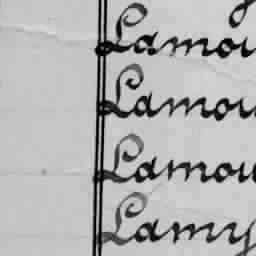 Lamou
Lamou
Lamou
Lamy